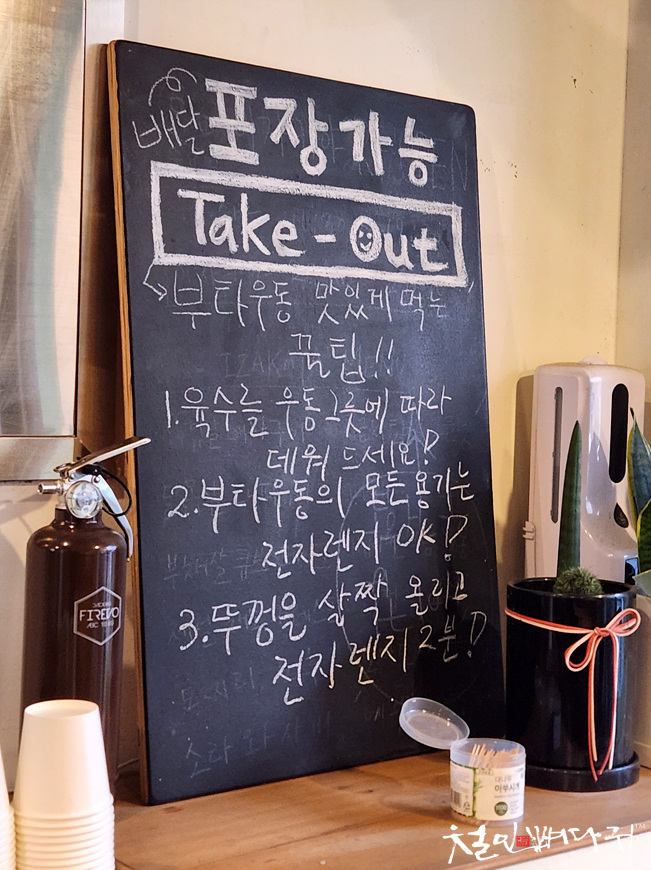 배달 포장가능
Take-Out
부타우동 맛있게 먹는
꿀팁!!
1. 육수를 우동그릇에 따라
데워 드세요!
2. 부타우동의 모든용기는
전자렌지 OK!
3. 뚜껑을 살짝 올리고
전자렌지 2분!
FIREVO
이쑤시개